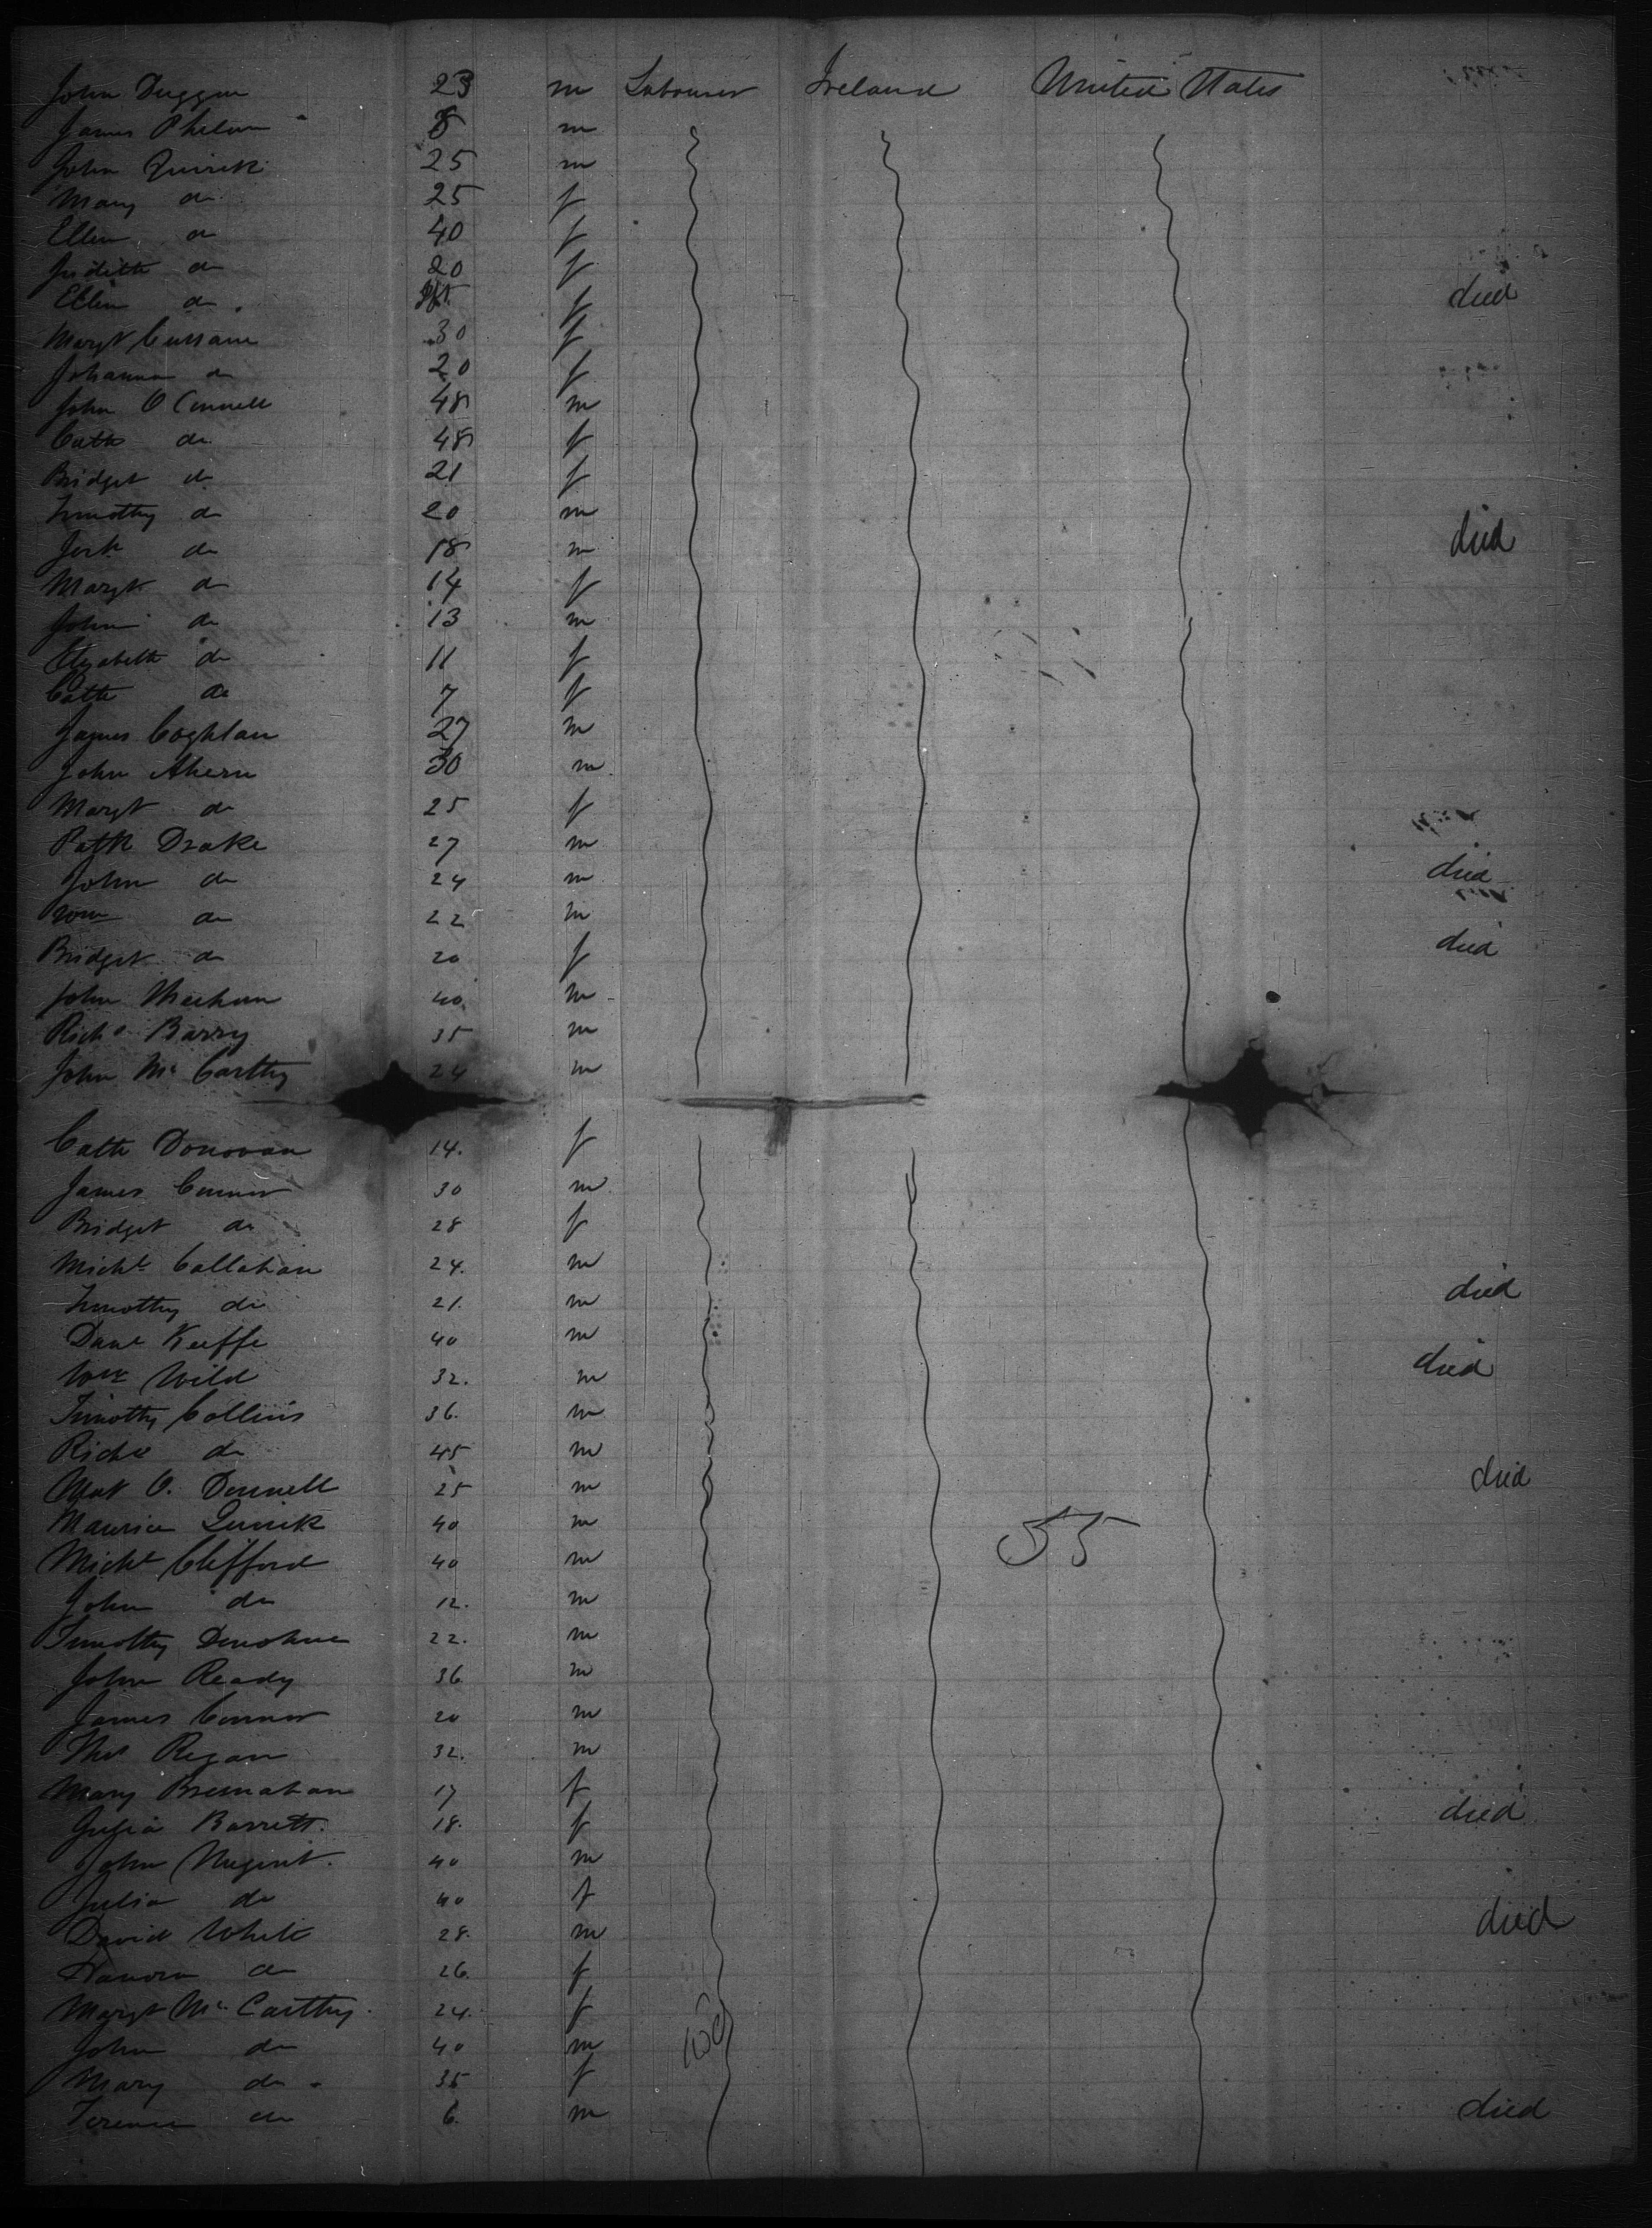 John Duggan 23 m Labourer Ireland United States
James Phelan 8 m
John Quirk 25 m
Mary do 25 f
Ellen do 40 f
Judith do 20 f
Ellen do Inft f died
Margt Cussane 30 f
Johanna do 20 f
John O Connell 48 m
Cath do 48 f
Bridget do 21 f
Timothy do 20 m died
Jerh do 18 m
Margt do 14 f
John do 13 m
Elizabeth do 11 f
Cath do 7 f
James Coghlan 27 m
John Ahern 30 m
Margt do 25 f
Patk Drake 27 m
John do 24 m died
Wm do 22 m
Bridget do 20 f died
John Meehan 40 m
Richd Barry 35 m
John Mc Carthy 24 m
Cath Donovan 14. f
James Connor 30 m
Bridget do 28 f
Michl Callahan 24. m
Timothy do 21. m died
Danl Keeffe 40 m
Wm Wild 32. m died
Timothy Collins 36. m
Richd do 45 m
Mat O. Donnell 25 m died
Maurice Quirk 40 m
55
Michl Clifford 40 m
John do 12. m
Timothy Donohue 22. m
John Ready 36 m
James Connor 20 m
Thos Regan 32. m
Mary Bresnahan 17 f
Julia Barrett. 18. f died
John Nugent. 40 m
Julia do 40 f
David White 28. m died
Hanora do 26. f
Margt Mc Carthy. 24. f
John do 40 m
Mary do 35 f
Terence do 6. m died